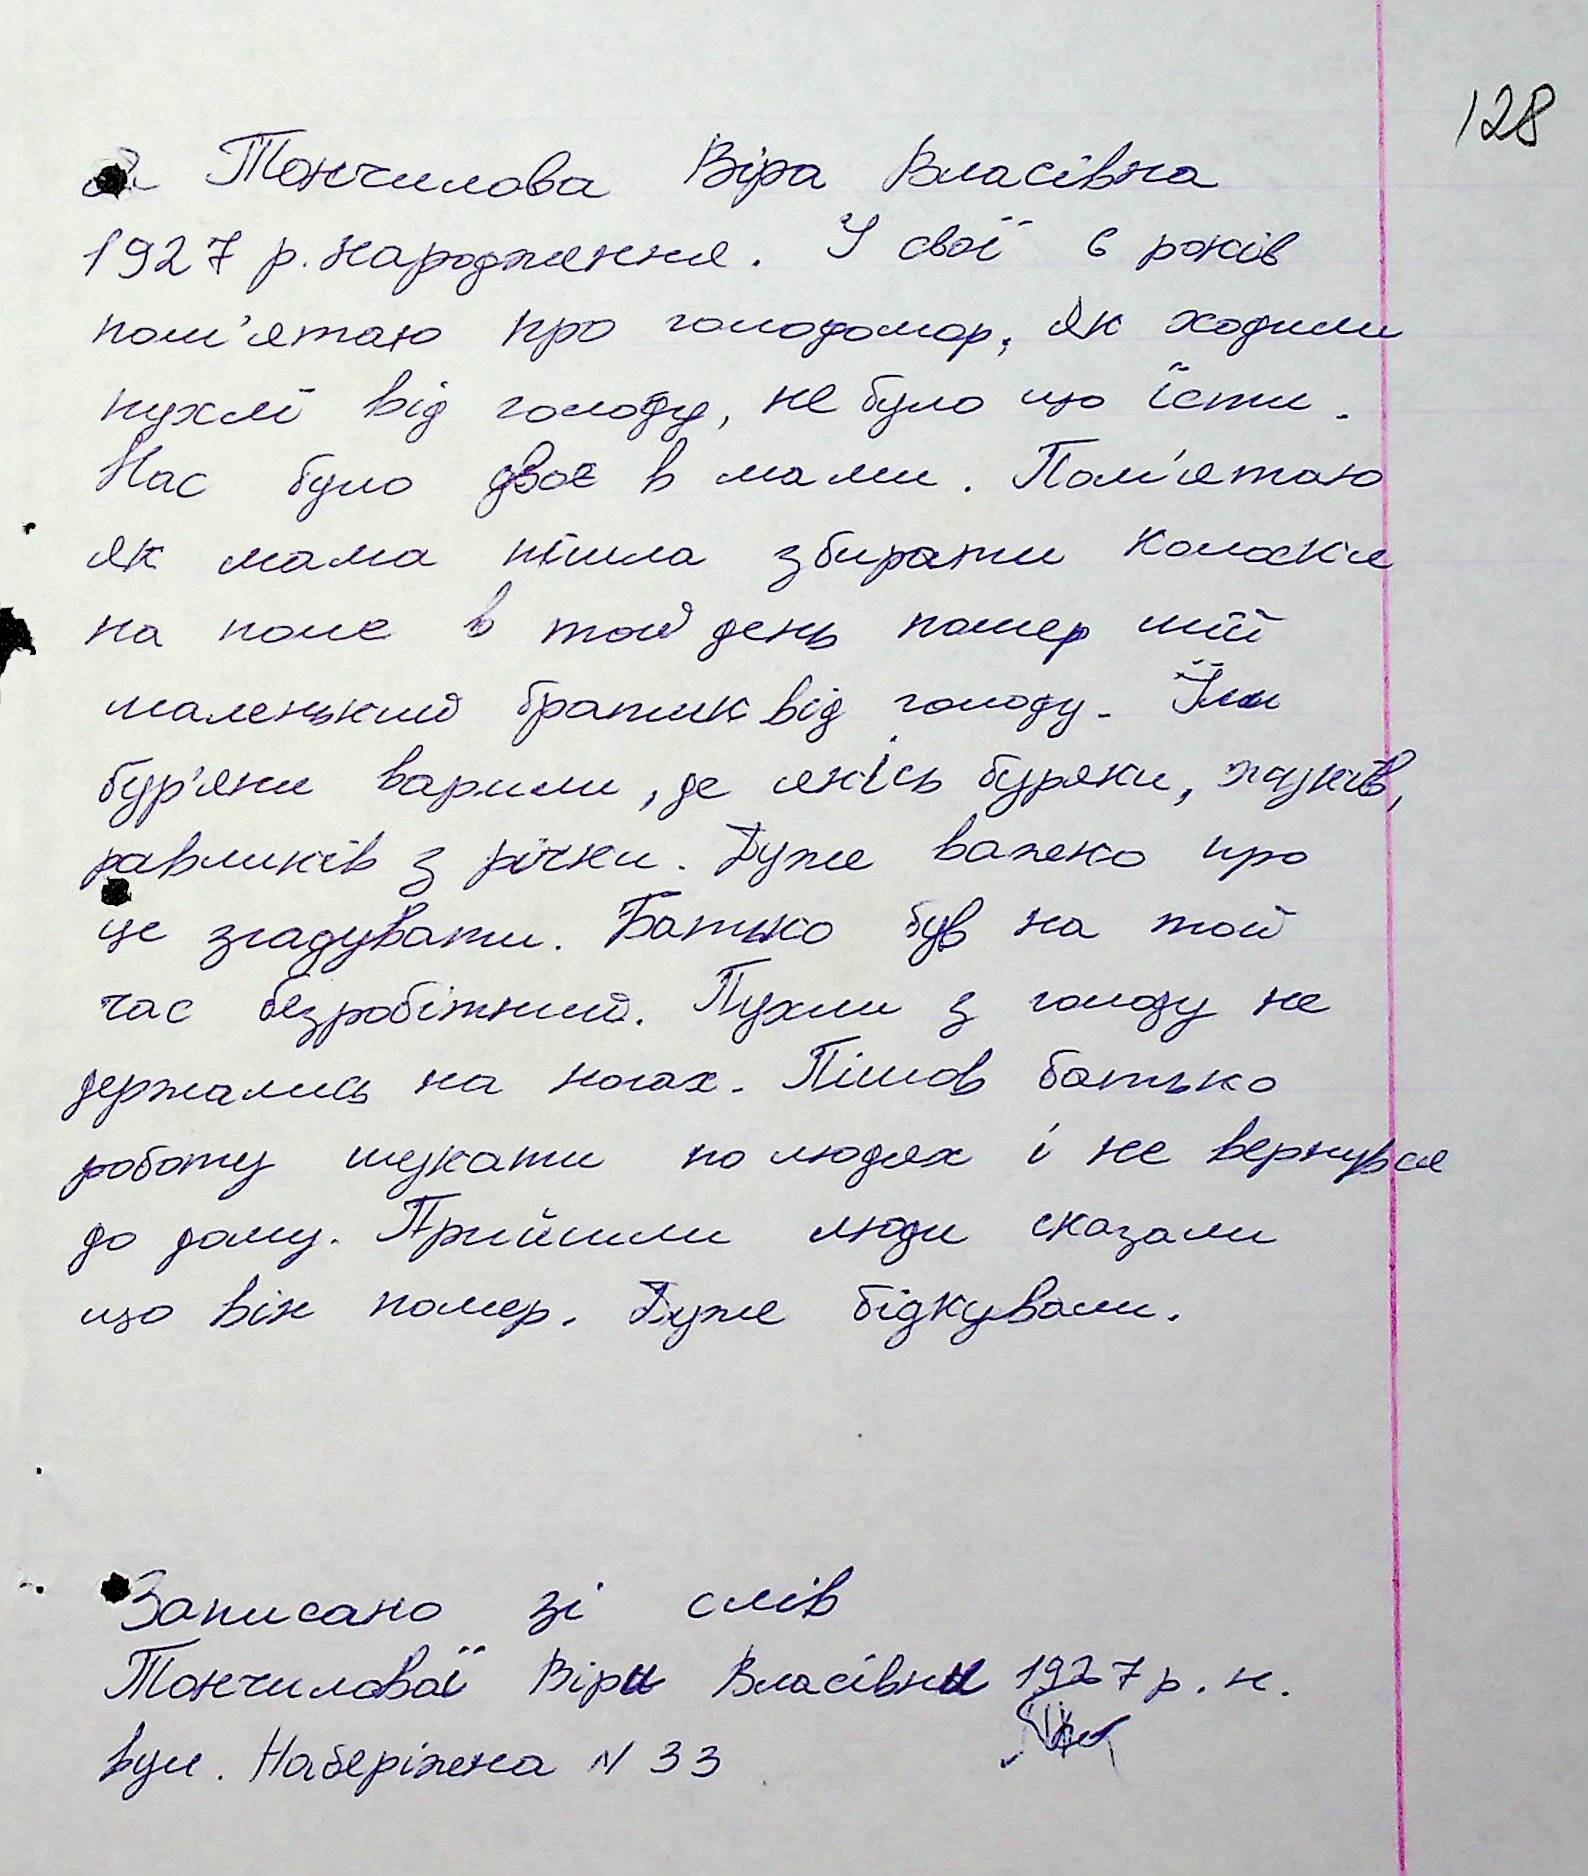 128
Тончилова Віра Власівна
1927 р. народження. У свої 6 років
пом'ятаю про голодомор, як ходили
пухлі від голоду, не було що їсти.
Нас було двоє в мами. Пом'ятаю
як мама пішла збирати колоски
на поле в той день помер мій
маленький братик від голоду. Їли
бур'яни варили, де якісь буряки, жуків,
равликів з річки. Дуже важко про
це згадувати. Батько був на той
час безробітний. Пухли з голоду не
держались на ногах. Пішов батько
роботу шукати по людях і не вернувся
до дому. Прийшли люди сказали
що він помер. Дуже бідкували.
Записано зі слів
Тончилової Віри Власівни 1927 р. н.
вул. Набережна N 33